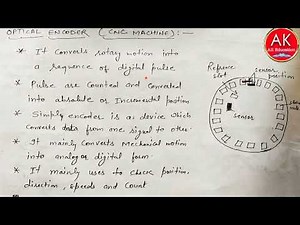 OPTICAL ENCODER (CNC MACHINE):-
* It converts rotary motion into
a sequence of digital pulse
* Pulse are counted and converted
into absolute or Incremental position
* Simply encoder is a device which
converts data from one signal to other.
* It mainly converts mechanical motion
into analog or digital form
* It mainly uses to check position,
direction, speeds and count
AK
Refrence
slot
sensor
position
sensor